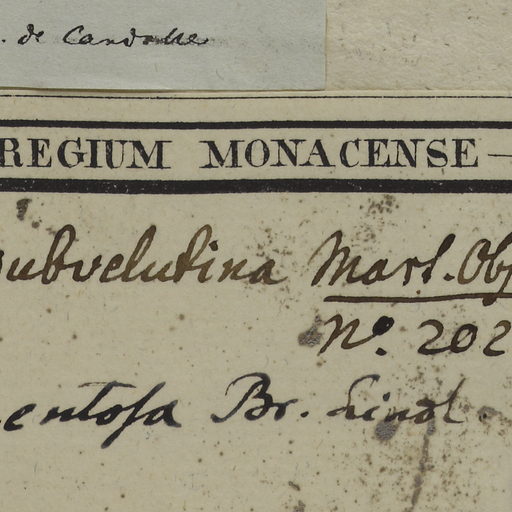 . de Candolle
REGIUM MONACENSE —
subvelutina Mart. Obs
No. 202
entosa Br. Lindl.